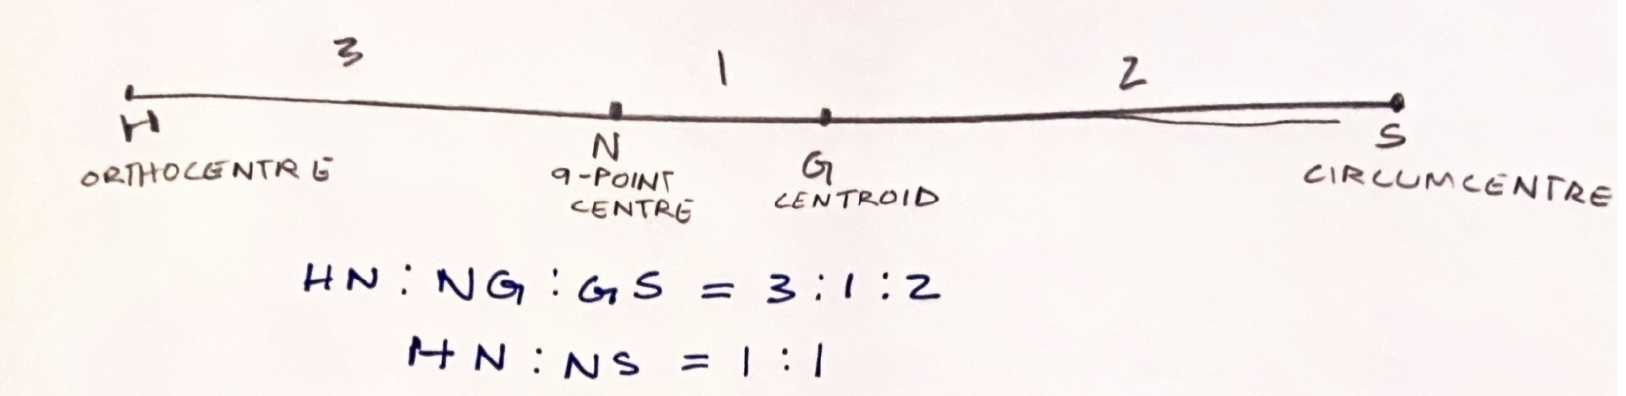 3 1 2
H N G S
ORTHOCENTRE 9-POINT CENTRE CENTROID CIRCUMCENTRE
HN : NG : GS = 3 : 1 : 2
HN : NS = 1 : 1